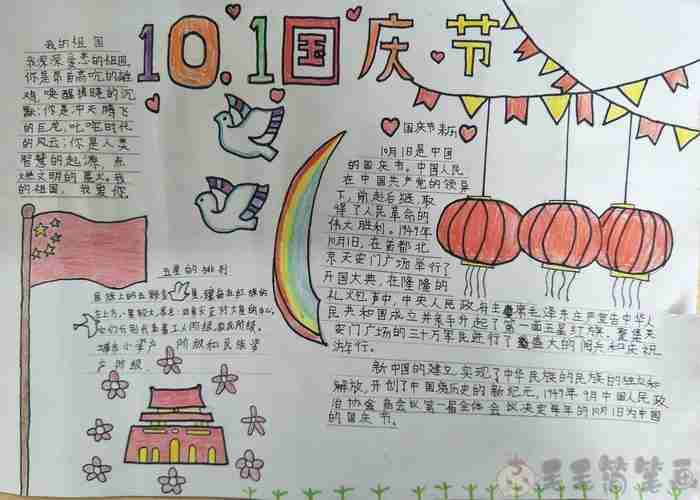 10.1国庆节
我的祖国
我深深爱恋的祖国,
你是昂首高沉的雄
鸡,唤醒拂晓的沉
默;你是冲天腾飞
的巨龙,叱咤时代
的风云;你是人类
智慧的起源,点
燃文明的星火。我
的祖国, 我爱你。
国庆节来历
10月1日是中国
的国庆节。中国人民
在中国共产党的领导
下,前赴后继,取
得了人民革命的
伟大胜利。1949年
10月1日,在首都北
京天安门广场举行了
开国大典,在隆隆的
礼炮声中,中央人民政府主席毛泽东庄严宣告中华人
民共和国成立并亲手升起了第一面五星红旗。聚集天
安门广场的三十万军民进行了盛大的阅兵和庆祝
游行。
新中国的建立,实现了中华民族的民族的独立和
解放,开创了中国历史的新纪元,1949年9月中国人民政
治协商会议第一届全体会议决定每年的10月1日为中国
的国庆节。
五星的排列
左上方,
工人阶级,农民阶级,
城市小资产阶级和民族资
产阶级.
无无简笔画